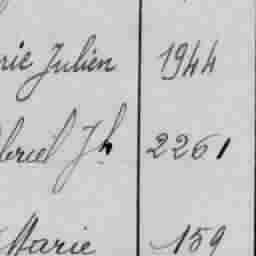 rie Julien 1944
briel Jh 2261
Marie 159